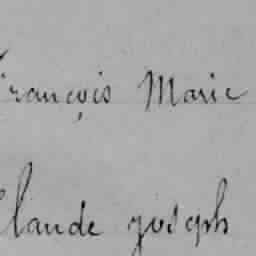 François Marie
Claude joseph